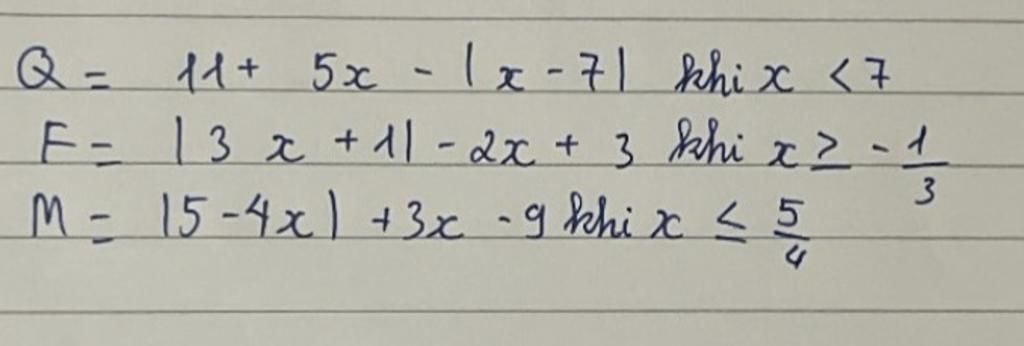 Q = 11 + 5x - |x - 7| khi x < 7
F = |3x + 1| - 2x + 3 khi x ≥ -1/3
M = |5 - 4x| + 3x - 9 khi x ≤ 5/4